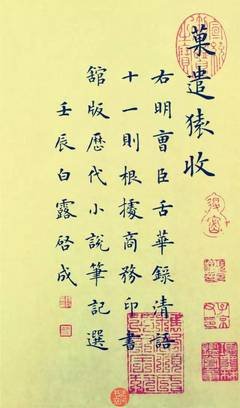 菓遣猿收
右明曹臣舌華錄清語
十一則根據商務印書
舘版歷代小說筆記選
壬辰白露啓成